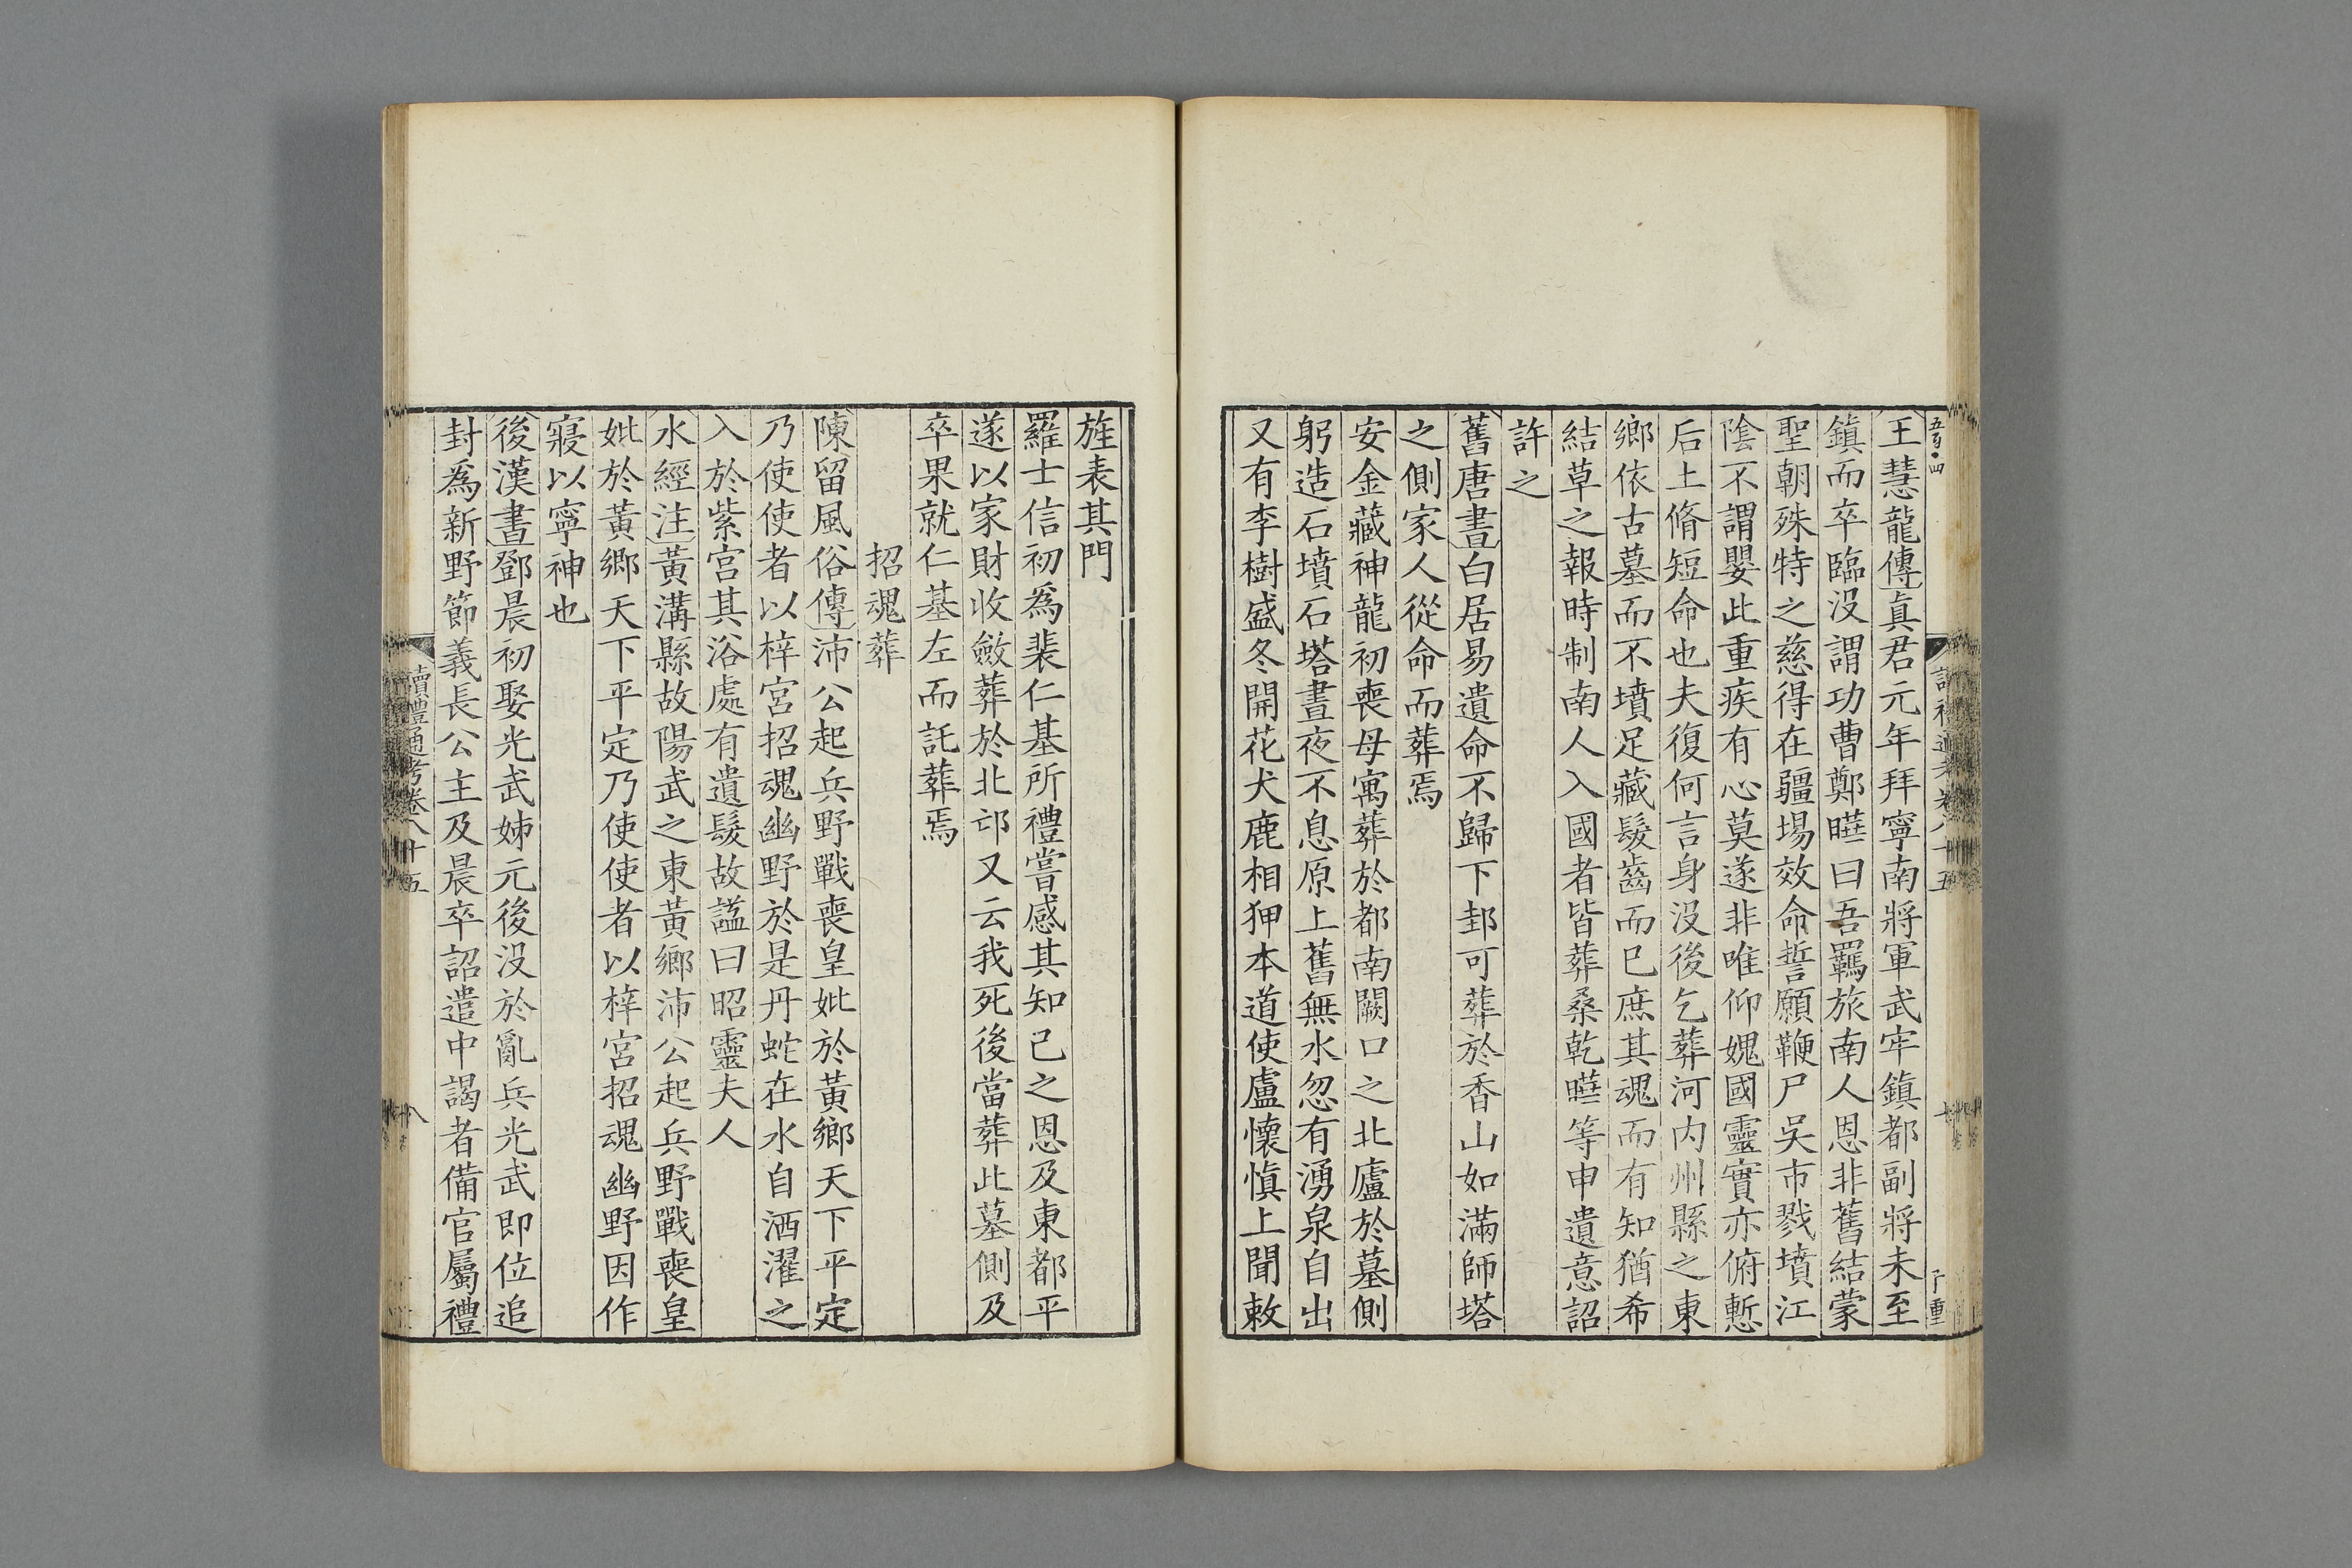 王慧龍傳眞君元年拜寧南將軍武牢鎮都副將未至
鎮而卒臨没謂功曹鄭曄曰吾羈旅南人恩非舊結蒙
聖朝殊特之慈得在疆場效命誓願鞭尸吳市戮墳江
陰不謂嬰此重疾有心莫遂非唯仰媿國靈實亦俯慙
后土脩短命也夫復何言身没後乞葬河内州縣之東
鄉依古墓而不墳足藏髮齒而已庶其魂而有知猶希
結草之報時制南人入國者皆葬桑乾曄等申遺意詔
許之
舊唐書白居易遺命不歸下邽可葬於香山如滿師塔
之側家人從命而葬焉
安金藏神龍初喪母寓葬於都南闕口之北廬於墓側
躬造石墳石塔晝夜不息原上舊無水忽有湧泉自出
又有李樹盛冬開花犬鹿相狎本道使盧懷慎上聞敕
旌表其門
羅士信初為裴仁基所禮嘗感其知已之恩及東都平
遂以家財收斂葬於北邙又云我死後當葬此墓側及
卒果就仁基左而託葬焉
招魂葬
陳留風俗傳沛公起兵野戰喪皇妣於黃鄉天下平定
乃使使者以梓宮招魂幽野於是丹蛇在水自洒濯之
入於紫宮其浴處有遺髮故諡曰昭靈夫人
水經注黃溝縣故陽武之東黃鄉沛公起兵野戰喪皇
妣於黃鄉天下平定乃使使者以梓宮招魂幽野因作
寢以寧神也
後漢書鄧晨初娶光武姊元後没於亂兵光武即位追
封為新野節義長公主及晨卒詔遣中謁者備官屬禮
讀禮通考卷八十五
八